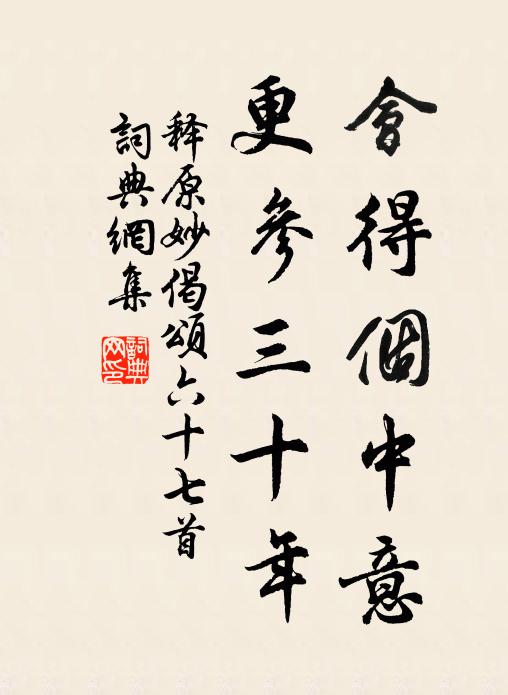 會得個中意
更參三十年
释原妙偈頌六十七首
詞典網集
詞典
网印